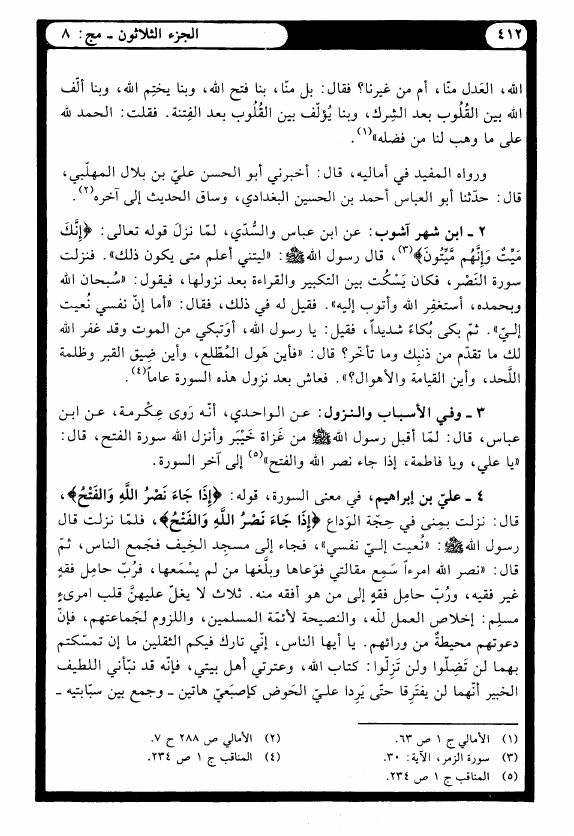 ٤١٢
الجزء الثلاثون ـ مج: ٨
الله، العَدل منّا، أم من غيرنا؟ فقال: بل منّا، بنا فتح الله، وبنا يختِم الله، وبنا ألّف
الله بين القُلُوب بعد الشِرك، وبنا يُؤلّف بين القُلُوب بعد الفِتنة. فقلت: الحمد لله
على ما وهب لنا من فضله»(١).
ورواه المفيد في أماليه، قال: أخبرني أبو الحسن عليّ بن بلال المهلّبي،
قال: حدّثنا أبو العباس أحمد بن الحسين البغدادي، وساق الحديث إلى آخره(٢).
٢ ـ ابن شهر آشوب: عن ابن عباس والسُّدّي، لمّا نزلَ قوله تعالى: ﴿إِنَّكَ
مَيِّتٌ وَإِنَّهُم مَّيِّتُونَ﴾(٣)، قال رسول الله ﷺ: «ليتني أعلم متى يكون ذلك». فنزلت
سورة النَصْر، فكان يَسْكُت بين التكبير والقراءة بعد نزولها، فيقول: «سُبحان الله
وبحمده، أستغفِر الله وأتوب إليه». فقيل له في ذلك، فقال: «أما إنّ نفسي نُعيت
إليّ». ثمّ بكى بُكاءً شديداً، فقيل: يا رسول الله، أوَتبكي من الموت وقد غفر الله
لك ما تقدّم من ذنبِك وما تأخّر؟ قال: «فأين هَول المُطّلع، وأين ضِيق القبر وظلمة
اللَّحد، وأين القيامة والأهوال؟». فعاش بعد نزول هذه السورة عاماً(٤).
٣ ـ وفي الأسباب والنزول: عن الواحدي، أنّه رَوى عِكْرمة، عن ابن
عباس، قال: لمّا أقبل رسول الله ﷺ من غَزاة خَيْبَر وأنزل الله سورة الفتح، قال:
«يا علي، ويا فاطمة، إذا جاء نصر الله والفتح»(٥) إلى آخر السورة.
٤ ـ عليّ بن إبراهيم، في معنى السورة، قوله: ﴿إِذَا جَاءَ نَصْرُ اللَّهِ وَالفَتْحُ﴾،
قال: نزلت بمِنى في حِجّة الوَداع ﴿إِذَا جَاءَ نَصْرُ اللَّهِ وَالفَتْحُ﴾، فلمّا نزلت قال
رسول الله ﷺ: «نُعيت إليّ نفسي»، فجاء إلى مسجِد الخِيف فجَمع الناس، ثمّ
قال: «نصر الله امرءاً سَمِع مقالتي فوَعاها وبلَّغها من لم يسْمَعها، فرُبّ حامِل فقهٍ
غير فقيه، ورُبّ حامِل فقهٍ إلى من هو أفقه منه. ثلاث لا يغلّ عليهنَّ قلب امرىءٍ
مسلِم: إخلاص العمل لله، والنصيحة لأئمّة المسلمين، واللزوم لجَماعتهم، فإنّ
دعوتهم محيطةٌ من ورائهم. يا أيها الناس، إنّي تارك فيكم الثقلين ما إن تمسّكتم
بهما لن تَضِلّوا ولن تَزِلّوا: كتاب الله، وعترتي أهل بيتي، فإنّه قد نبّأني اللطيف
الخبير أنّهما لن يفتَرِقا حتّى يَرِدا عليّ الحَوض كإصبَعيّ هاتين ـ وجمع بين سبّابتيه ـ
(١) الأمالي ج ١ ص ٦٣.
(٢) الأمالي ص ٢٨٨ ح ٧.
(٣) سورة الزمر، الآية: ٣٠.
(٤) المناقب ج ١ ص ٢٣٤.
(٥) المناقب ج ١ ص ٢٣٤.